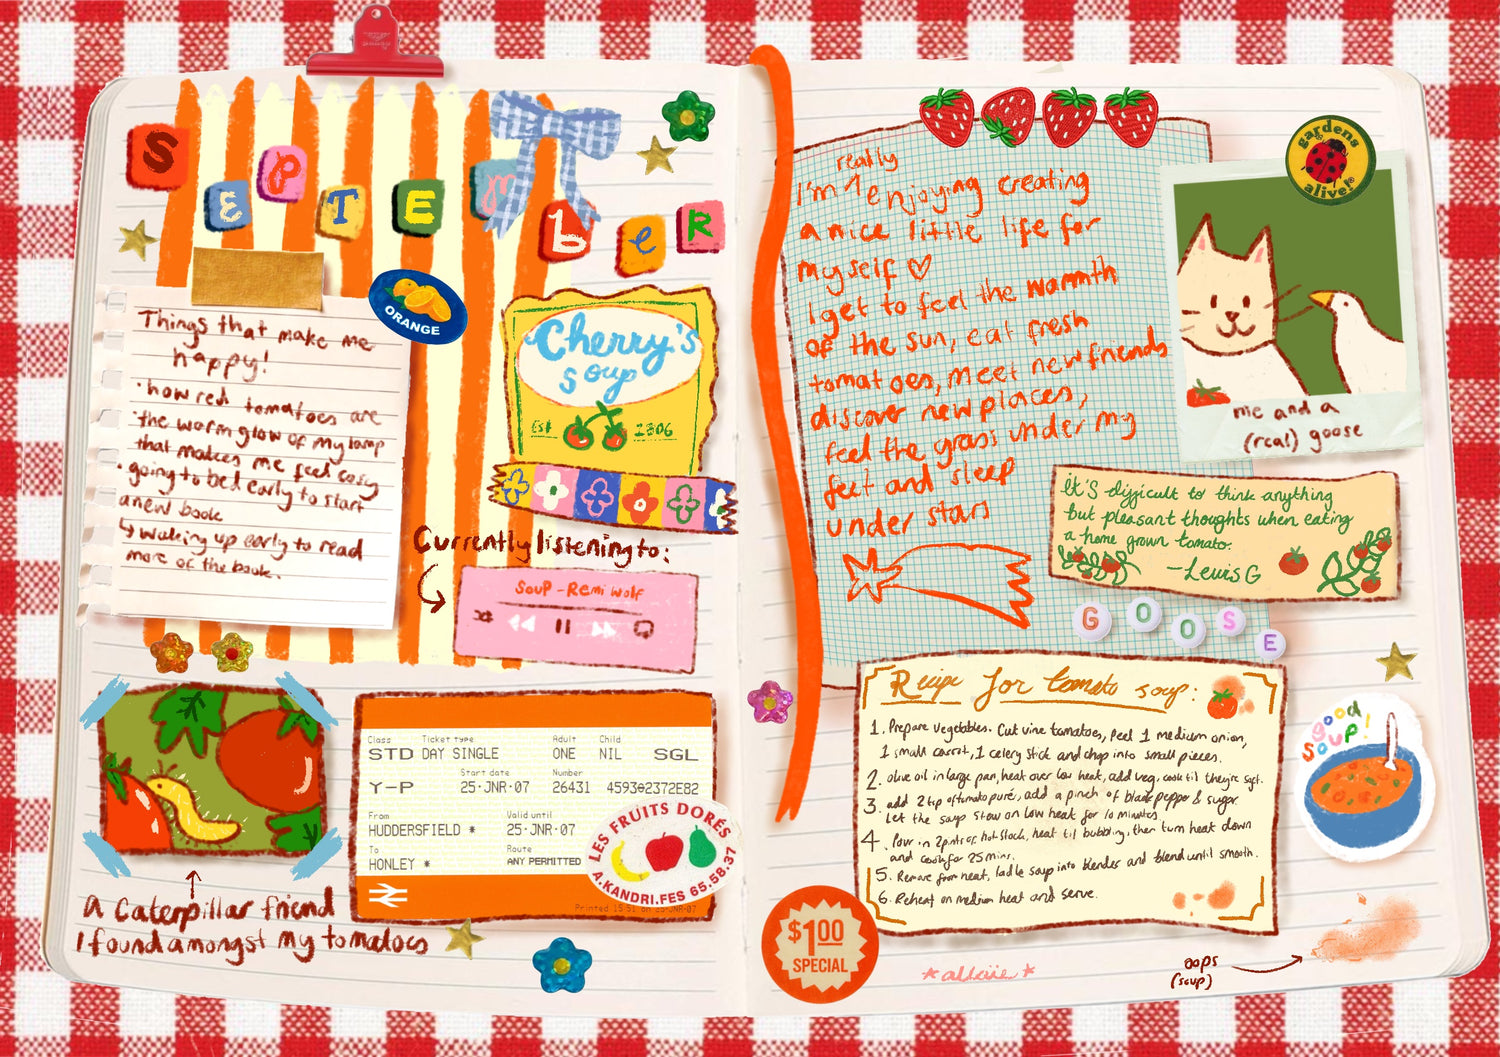 SEPTEMbeR
ORANGE
Things that make me
happy!
· how red tomatoes are
· the warm glow of my lamp
that makes me feel cosy
· going to bed early to start
a new book
↳ waking up early to read
more of the book.
Cherry's
Soup
Est 2306
Currently listening to:
Soup - Remi Wolf
A caterpillar friend
I found amongst my tomatoes
Class Ticket type Adult Child
STD DAY SINGLE ONE NIL SGL
Start date Number
Y-P 25·JNR·07 26431 459302372E82
From Valid until
HUDDERSFIELD * 25·JNR·07
To Route
HONLEY * ANY PERMITTED
Printed 15:51 on 25·JNR·07
LES FRUITS DORÉS
A.KANDRI.FES 65.58.37
really
I'm ^ enjoying creating
a nice little life for
myself ♡
I get to feel the warmth
of the sun, eat fresh
tomatoes, meet new friends
discover new places,
feel the grass under my
feet and sleep
under stars
gardens
alive!®
me and a
(real) goose
It's difficult to think anything
but pleasant thoughts when eating
a home grown tomato.
- Lewis G
GOOSE
Recipe for tomato soup:
1. Prepare vegetables. Cut vine tomatoes, peel 1 medium onion,
1 small carrot, 1 celery stick and chop into small pieces.
2. olive oil in large pan, heat over low heat, add veg, cook til they're soft.
3. add 2 tsp of tomato puré, add a pinch of black pepper & sugar.
Let the soup stew on low heat for 10 minutes.
4. Pour in 2 pints of hot stock, heat til bubbling, then turn heat down
and cook for 25 mins.
5. Remove from heat, ladle soup into blender and blend until smooth.
6. Reheat on medium heat and serve.
good
soup!
$1.00
SPECIAL
*allaïe*
oops
(soup)